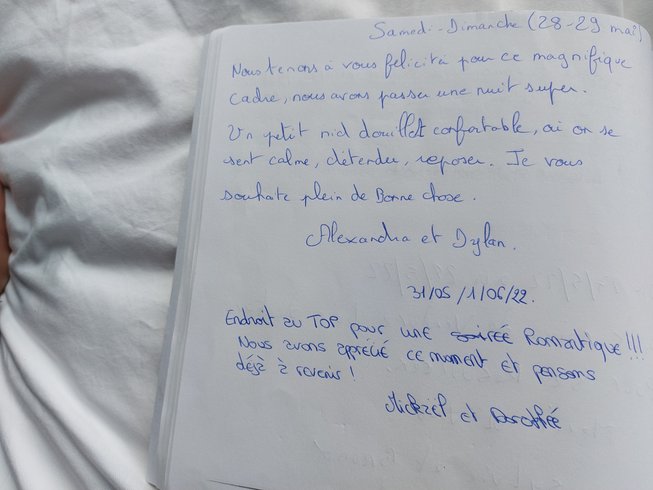 Samedi-Dimanche (28-29 mai)
Nous tenons à vous félicité pour ce magnifique
cadre, nous avons passer une nuit super.
Un petit nid douillet confortable, où on se
sent calme, détendu, reposer. Je vous
souhate plein de Bonne chose.
Alexandra et Dylan.
31/05/1/06/22.
Endroit au TOP pour une soirée Romantique!!!
Nous avons apprécié ce moment et pensons
déjà à revenir!
Mickael et Dorothée